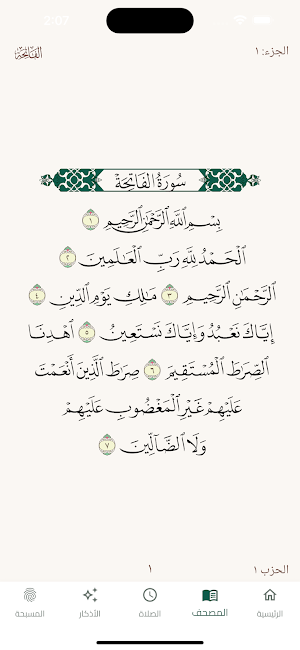 2:07
الجزء: ١
الفَاتِحَة
سُورَةُ الفَاتِحَةِ
بِسْمِ ٱللَّهِ ٱلرَّحْمَٰنِ ٱلرَّحِيمِ ١
ٱلْحَمْدُ لِلَّهِ رَبِّ ٱلْعَٰلَمِينَ ٢
ٱلرَّحْمَٰنِ ٱلرَّحِيمِ ٣ مَٰلِكِ يَوْمِ ٱلدِّينِ ٤
إِيَّاكَ نَعْبُدُ وَإِيَّاكَ نَسْتَعِينُ ٥ ٱهْدِنَا
ٱلصِّرَٰطَ ٱلْمُسْتَقِيمَ ٦ صِرَٰطَ ٱلَّذِينَ أَنْعَمْتَ
عَلَيْهِمْ غَيْرِ ٱلْمَغْضُوبِ عَلَيْهِمْ
وَلَا ٱلضَّآلِّينَ ٧
الحزب ١
١
الرئيسية
المصحف
الصلاة
الأذكار
المسبحة